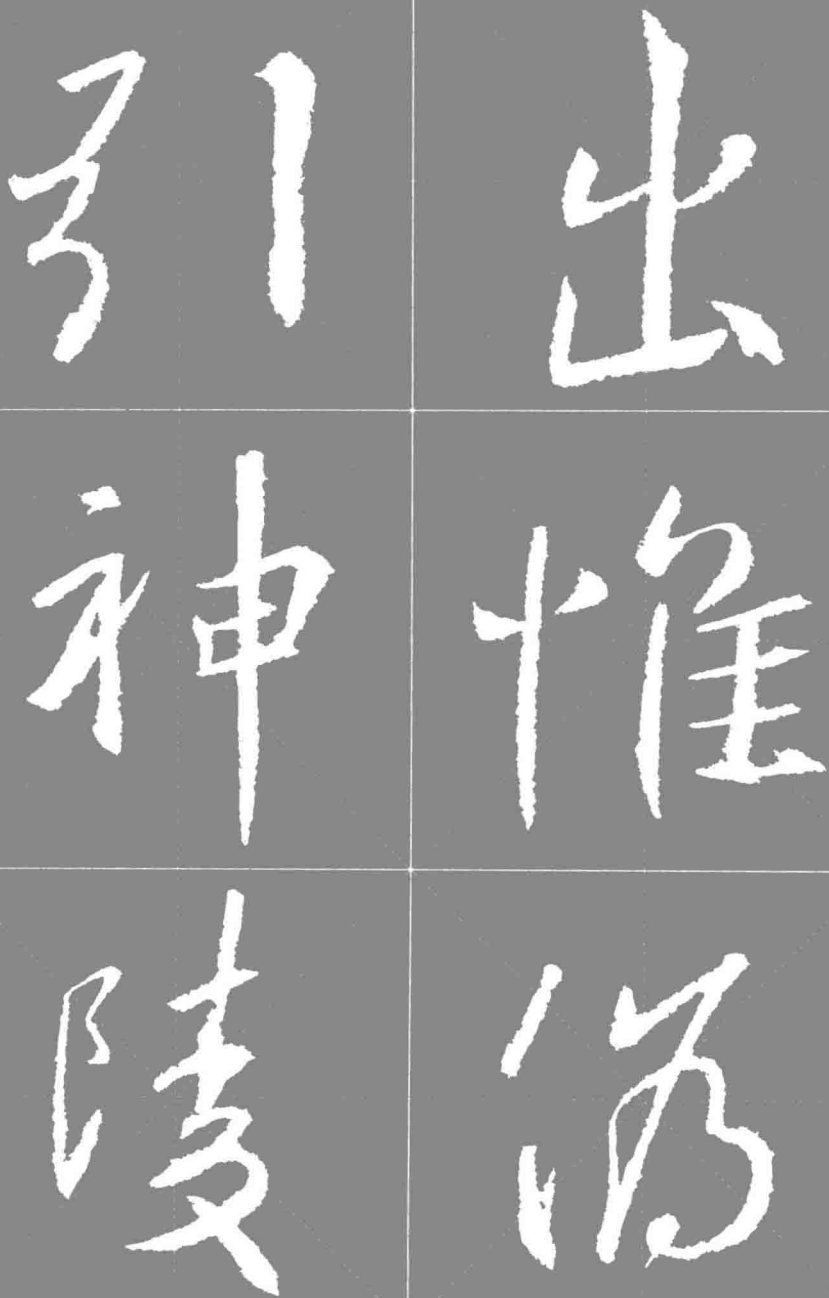 出惟偽
引神陵